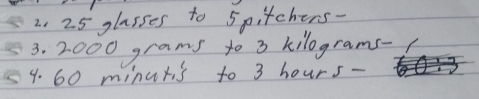 2. 25 glasses to 5 pitchers-
3. 2000 grams to 3 kilograms-
4. 60 minutis to 3 hours- 60:3